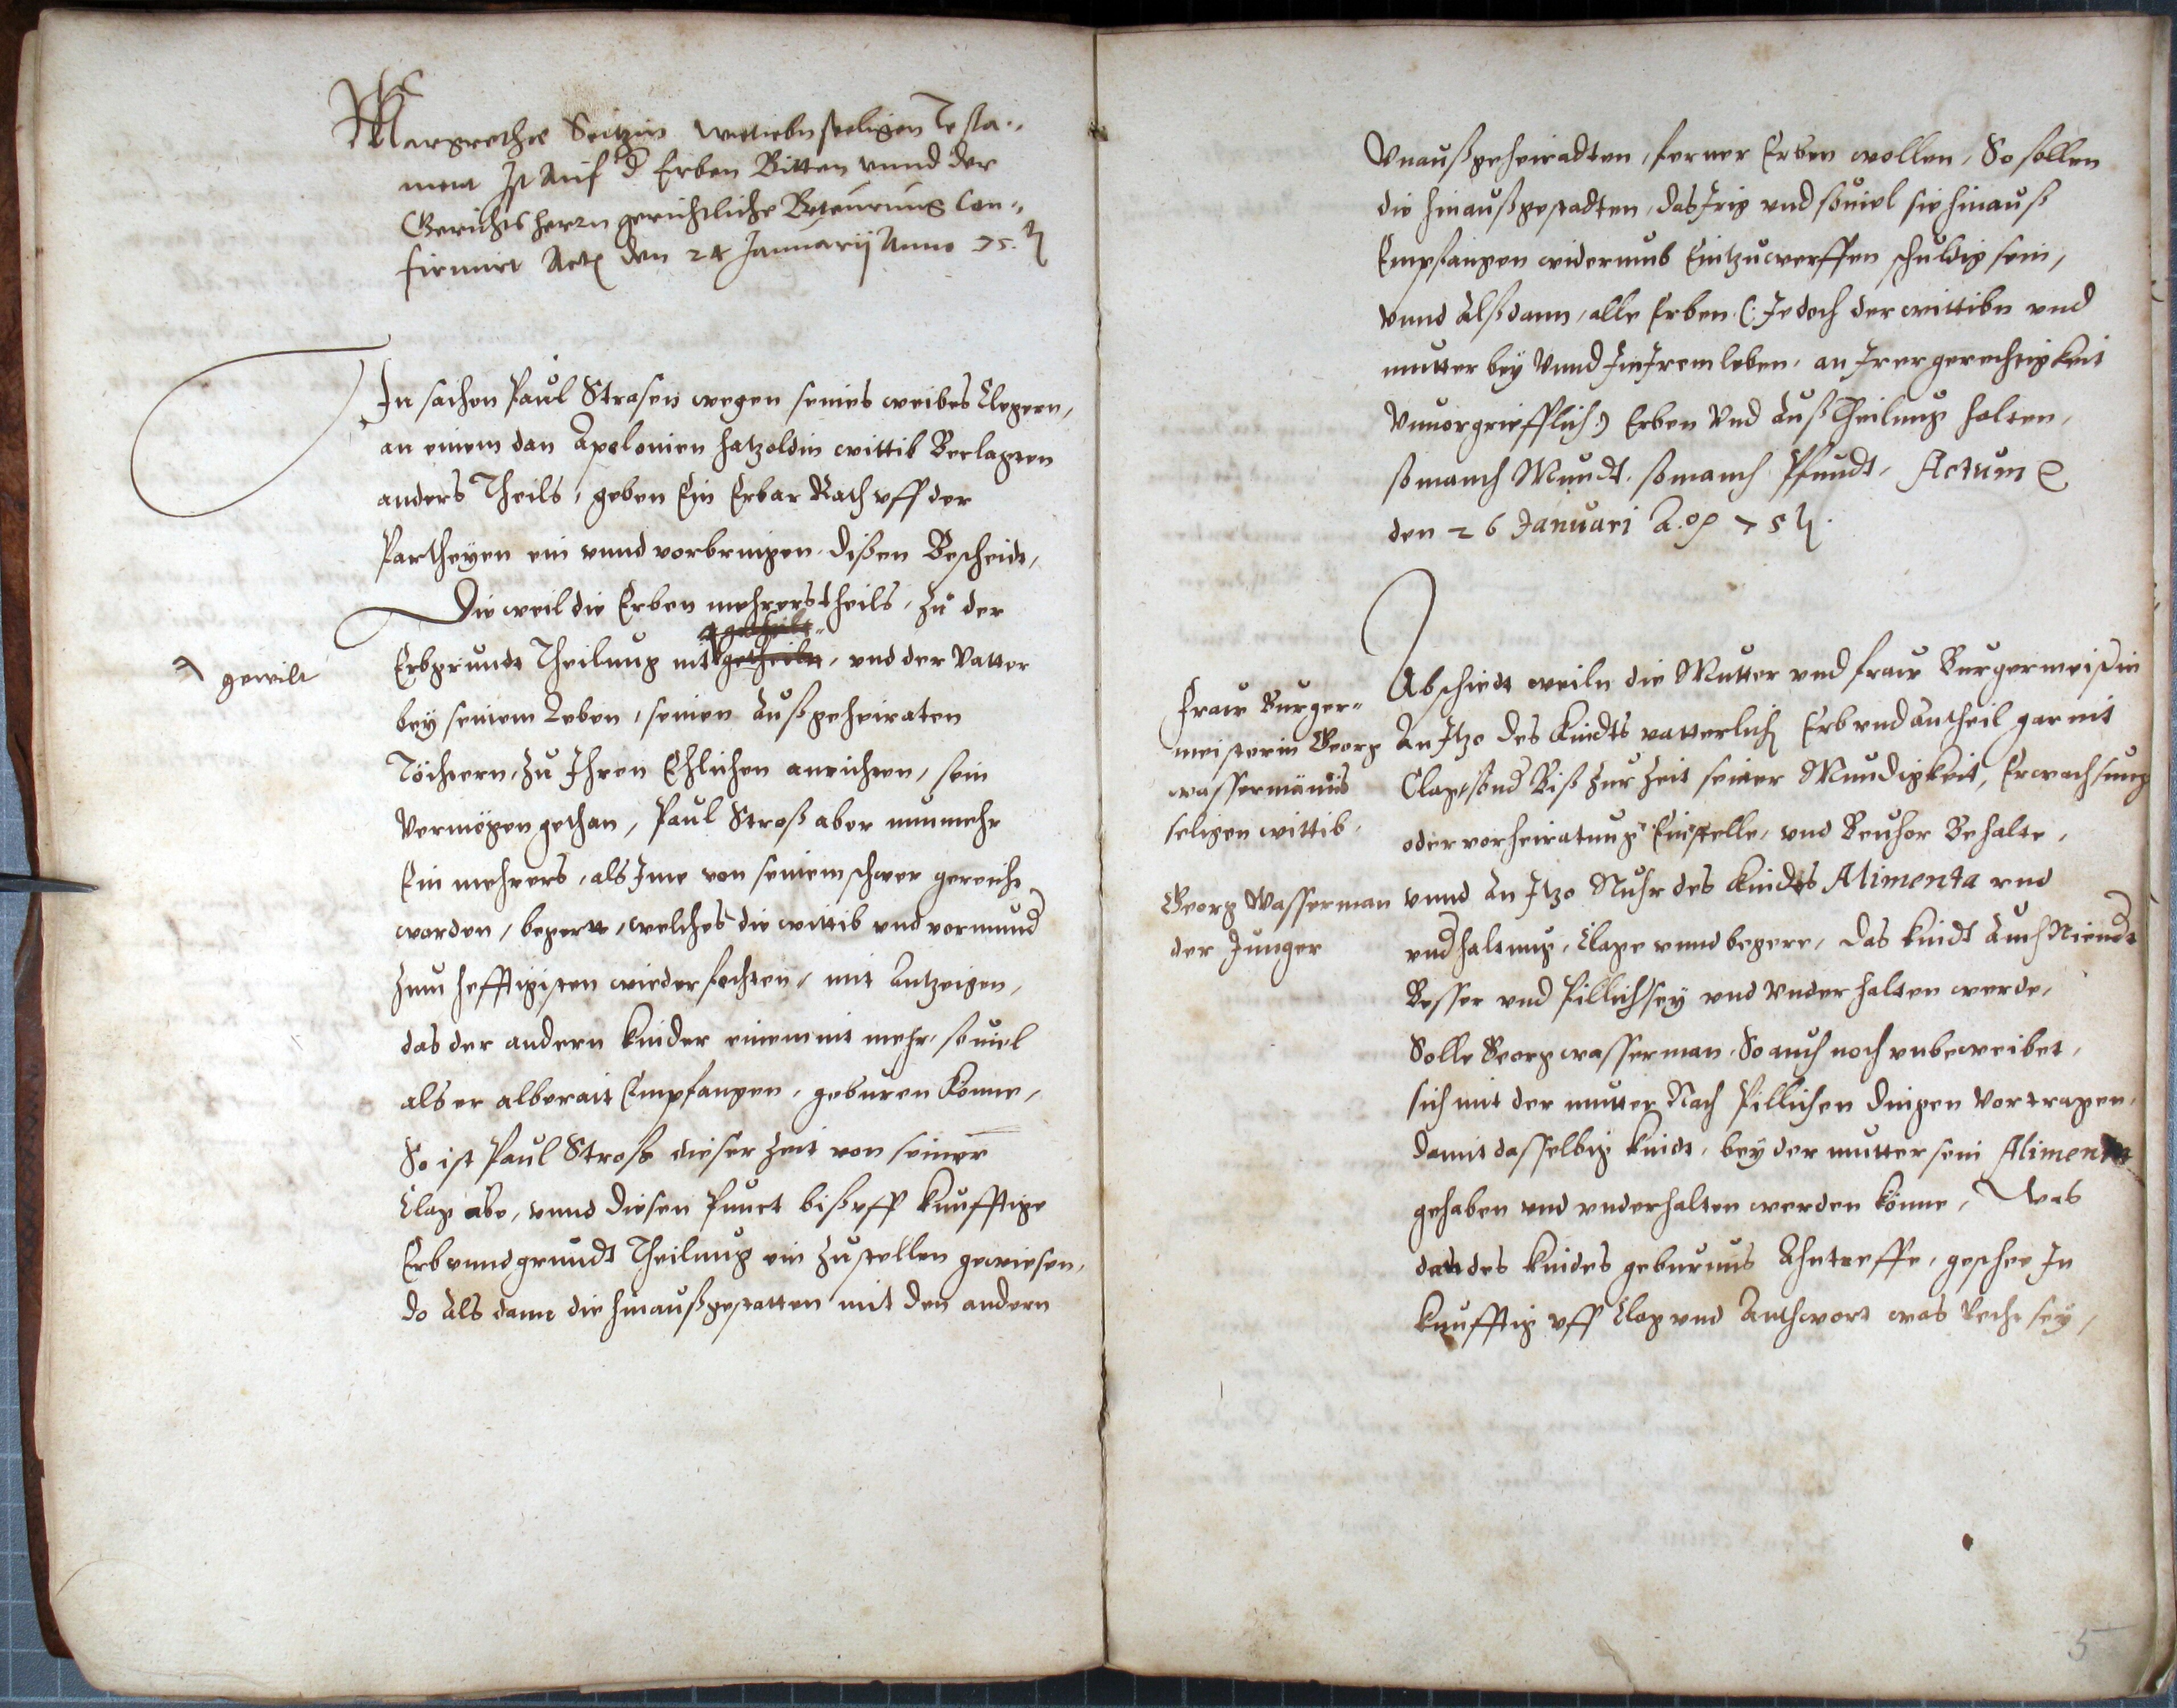 Margrethe Seitzin wittiebn seeligen Testa-,,
ment Ist Auf d Erben Bitten vnnd der
Gerichts herrn gerichtliche Beteurung Con-,,
firmirt Act den 24 Januarij Anno 75.
In sachen Paul Strasen wegen seines weibes Clegern,
an einem dan Apolonien Hatzoldin wittib Beclagten
anders Theils, geben Ein Erbar Rath vff der
Partheyen ein vnnd vorbringen dißen Bescheidt,
Die weil die Erben mehrerstheils, zu der
Erbgrundt Theilung nit getheilt, vnd der Vatter
gewilt
bey seinem Leben, seinen Außgeheiraten
Töchtern, zu Ihren Ehlichen anrichten, sein
Vermögen gethan, Paul Stroß aber nunmehr
Ein mehrers, als Ime von seinem schwer gereicht
worden, begert, welches die wittib vnd vormund
zum hefftigisten wiederfechten, mit Antzeigen,
das der andern kinder einem nit mehr, so uiel
als er alberait Empfangen, geburen könne,
So ist Paul Stroß dieser Zeit von seiner
Clag abe, vnnd diesen Punct biß vff kunfftige
Erb vnnd grundt Theilung ein zustellen gewiesen,
do als dann die hinaußgestatten mit den andern
Vnaußgeheiradten, ferner Erben wollen, So sollen
die hinaußgestadten, das Irig vnd souiel sie hinauß
Empfangen widerumb Eintzuwerffen schuldig sein,
vnnd Alßdann, alle Erben (: Jedoch der wittibn vnd
mutter bey Vnnd In Irem leben, an Irer gerechtigkeit
Vnuorgriefflich :) Erben Vnd Außtheilung halten,
so manch Mundt, so manch Pfundt, Actum
den 26 Januari A.o 75
Abschiedt weiln die Mutter vnd fraw Burgermeistin
Fraw Burger-
meisterin Georg
wassermänns
seligen wittib.
An Itzo des Kindts vatterlich Erb vnd Antheil gar nit
Clag, sond Biß zur Zeit seiner Mundigkeit, Erwachsung
oder vorheiratung Einstelle, vnd Beuhor Behalte,
Georg Wasserman
der Junger
vnnd An Itzo Nuhr des kindes Alimenta vnd
vndhaltung, Clage vnnd begere, das kindt Auch Niendt
Besser vnd Pillich sey vnd Vnderhalten werde,
Solle Georg wasserman, So auch noch vnbeweibet,
sich mit der mutter Nach Pillichen dingen Vortragen,
damit dasselbig kindt, bey der mutter sein Alimenta
gehaben vnd vnderhalten werden könne, Was
dan des kindes geburnus Ahntreffe, geschee In
kunfftig vff Clag vnd Anthwort was Recht sey,
5